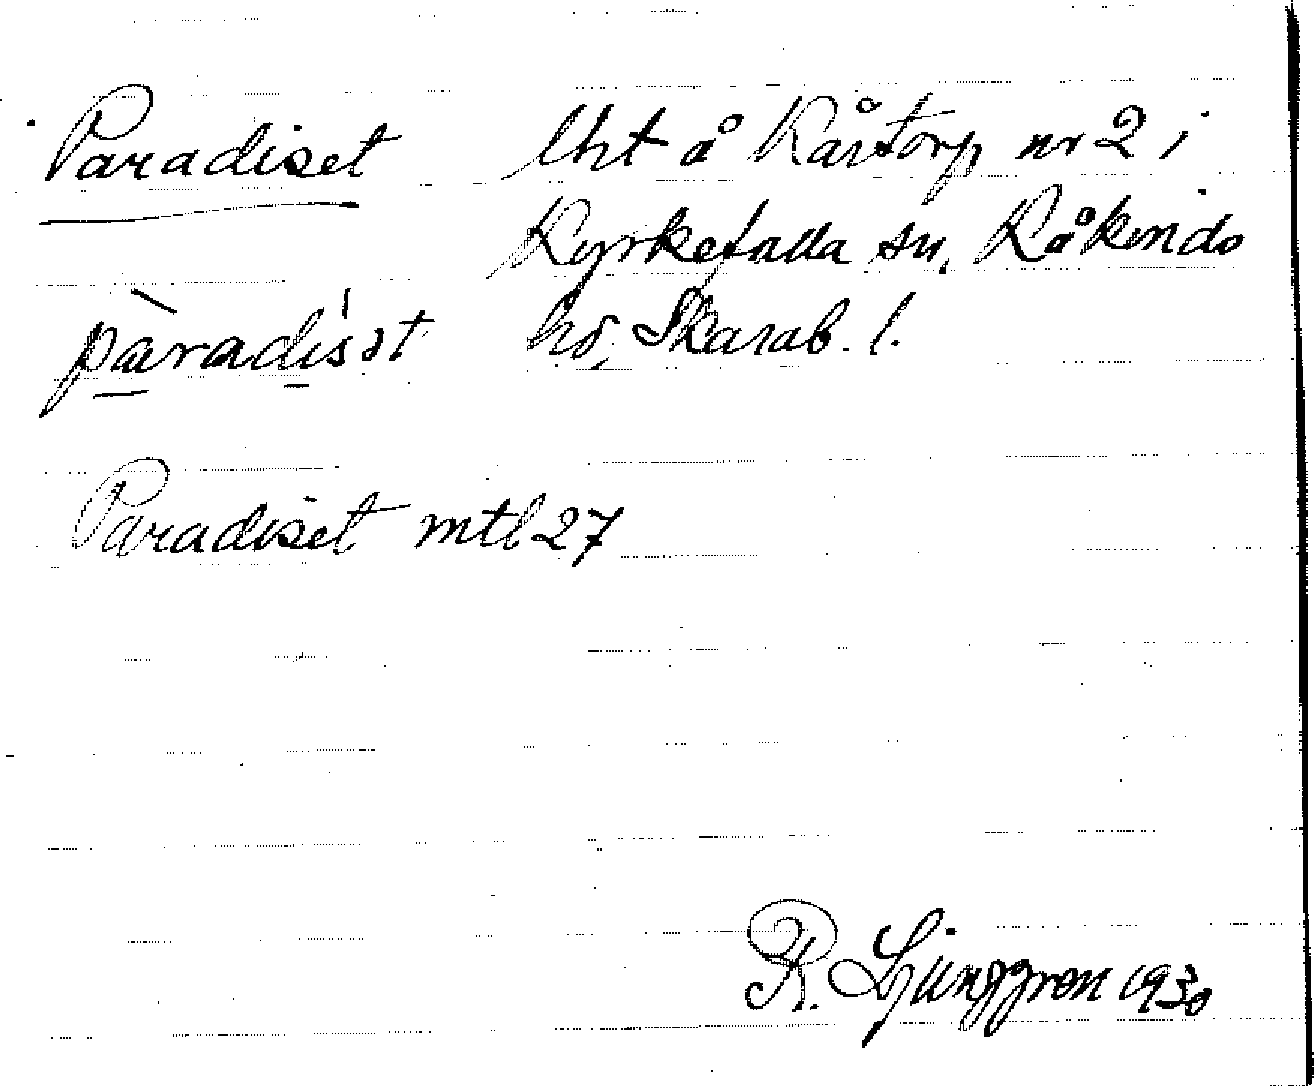 Paradiset lht å Kåstorp nr 2 i
Kyrkefalla sn, Kåkinds
hd, Skarab. l.
pàradi'sət
Paradiset mtl 27
R. Ljunggren 1930